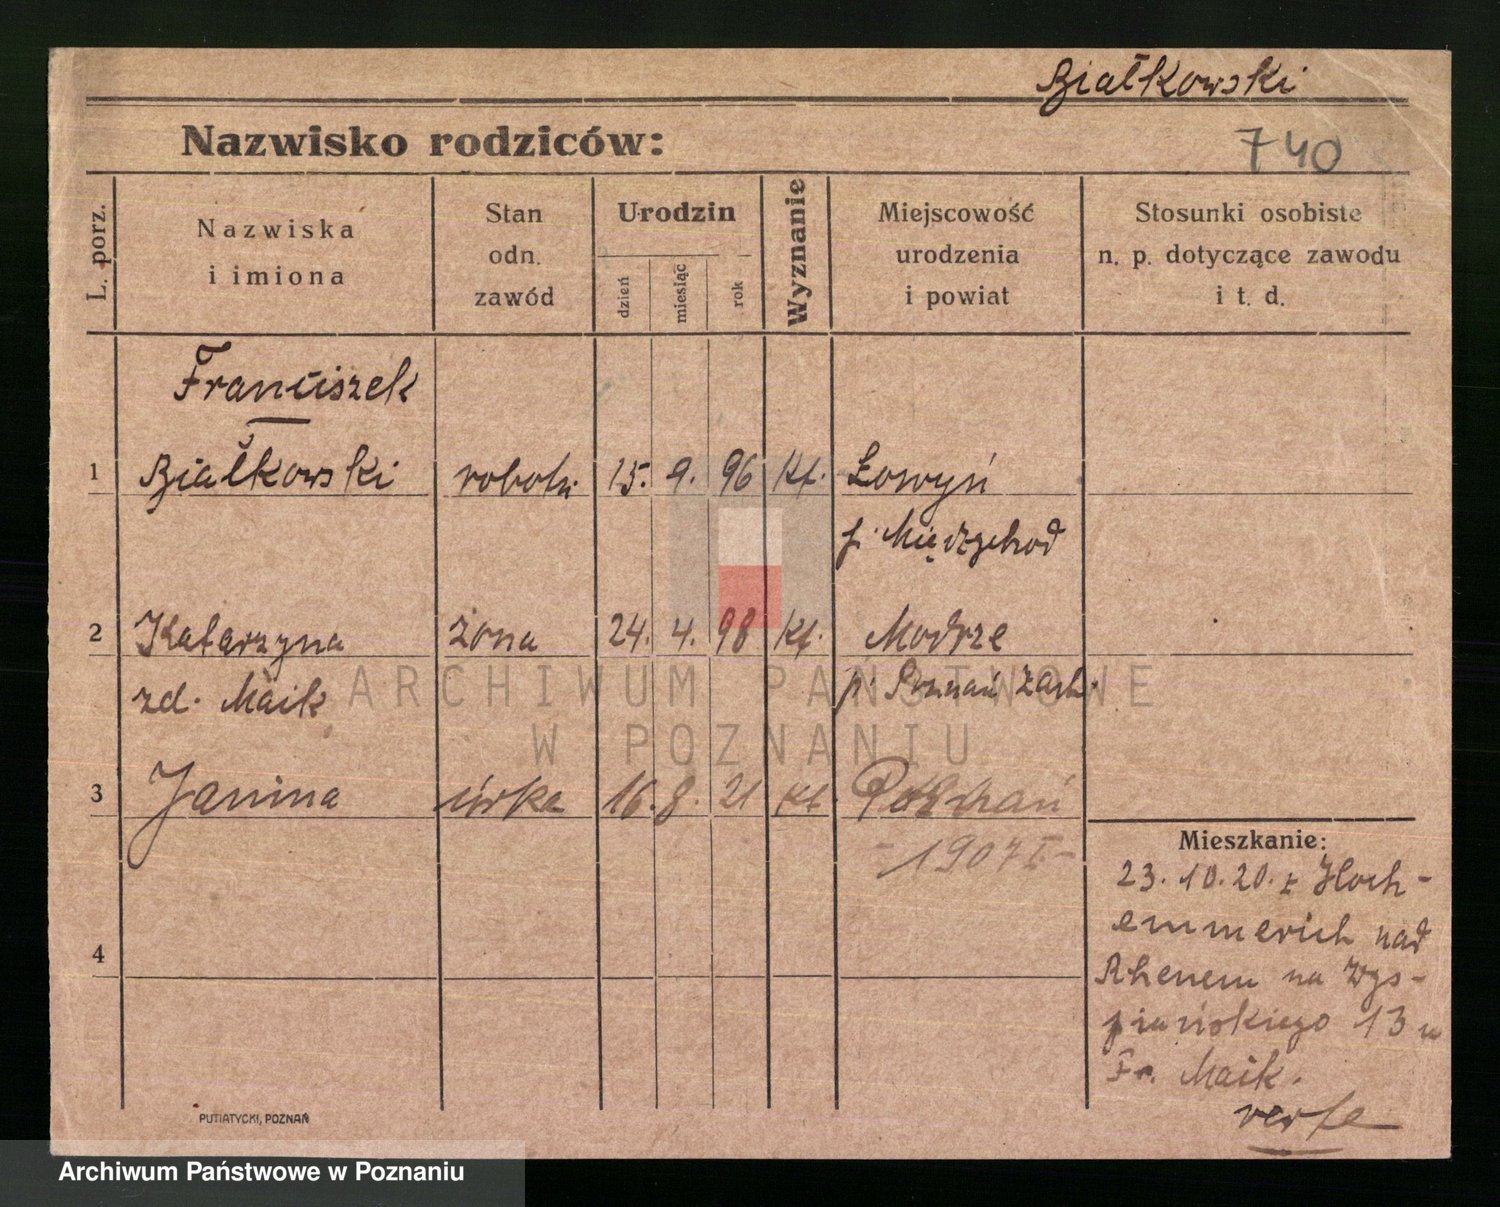 Białkowski
Nazwisko rodziców:
740
L. porz.
Nazwiska
i imiona
Stan
odn.
zawód
Urodzin
dzień
miesiąc
rok
Wyznanie
Miejscowość
urodzenia
i powiat
Stosunki osobiste
n. p. dotyczące zawodu
i t. d.
Franciszek
1 Białkowski robotn. 15. 9. 96 kt. Łowyń
p. Międzychod
2 Katarzyna żona 24. 4. 98 kt. Modrze
zd. Maik p. Poznań zach.
3 Janina córka 16. 8. 21 kt. Poznań
- 1907 I -
Mieszkanie:
23. 10. 20. z Hoch-
emmerich nad
4
Rhenem na Wys-
piańskiego 13 u
Fr. Maik.
verte
PUTIATYCKI, POZNAŃ
ARCHIWUM PAŃSTWOWE
W POZNANIU
Archiwum Państwowe w Poznaniu